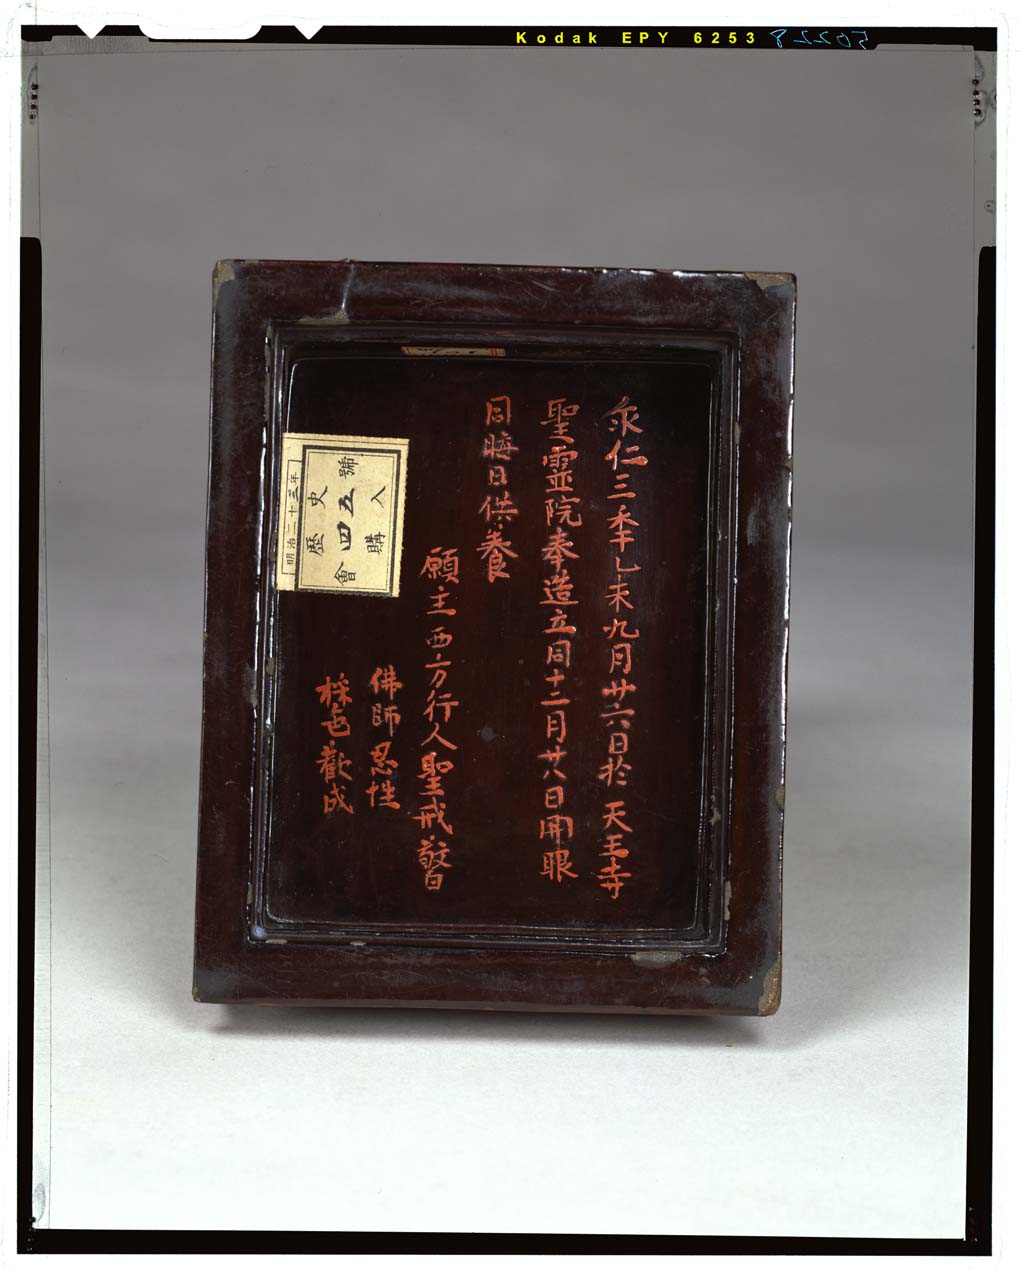 Kodak EPY 6253
永仁三季乙未九月廿六日於天王寺
聖霊院奉造立同十二月廿八日開眼
同晦日供養
願主西方行人聖戒敬白
佛師忍性
採色歡成
明治二十三年
歴史
會四五號
購入